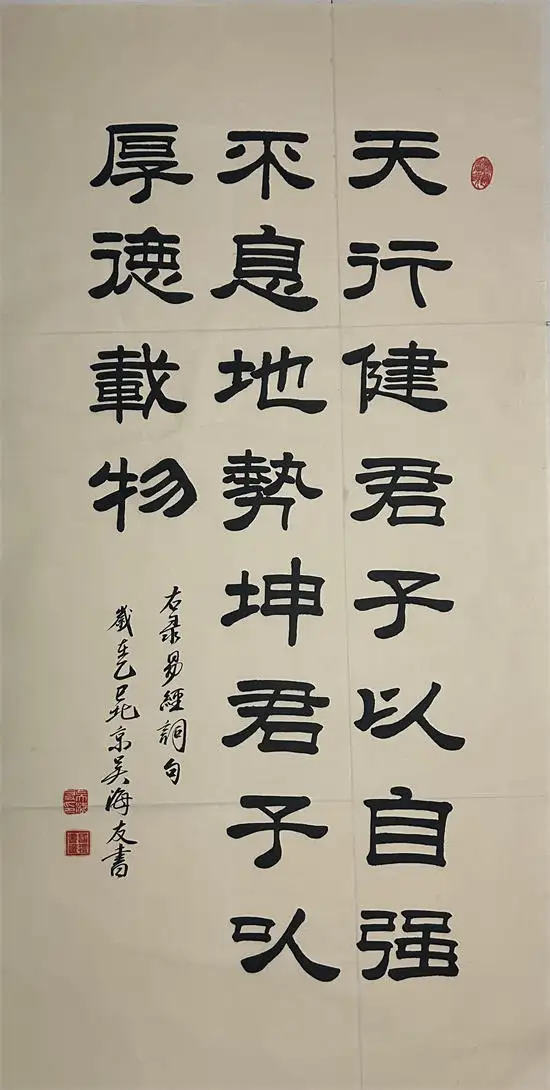 天行健君子以自强
不息地勢坤君子以
厚德載物
右录易經詞句
歲在乙巳北京吴海友書